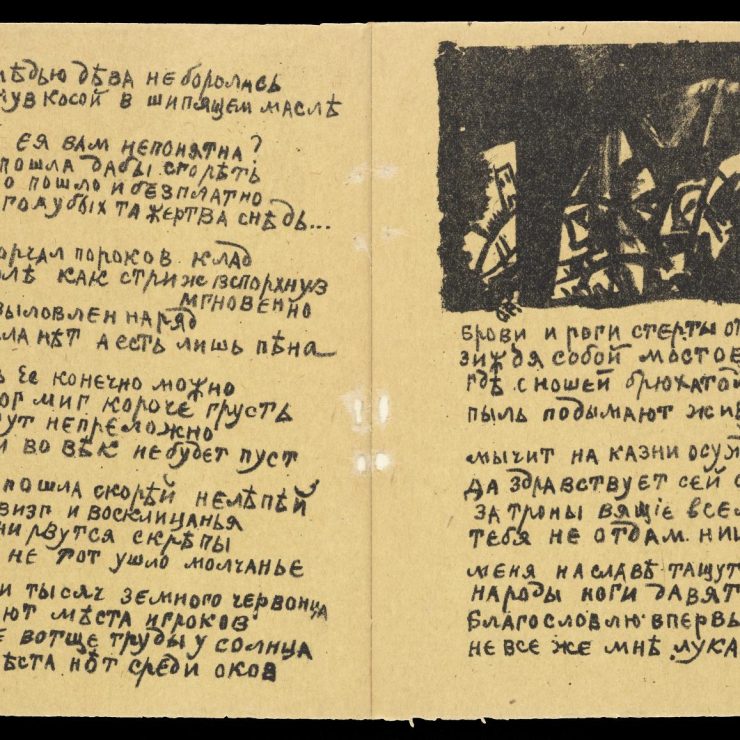 ѢДЬЮ ДѢВА НЕ БОРОЛАСЬ
УВ КОСОЙ В ШИПЯЩЕМ МАСЛѢ
ЕЯ ВАМ НЕПОНЯТНА?
ПОШЛА ДАБЫ СГОРѢТЬ
О ПОШЛО И БЕЗПЛАТНО
ГОЛУБЫХ ТА ЖЕРТВА СНѢДЬ...
ОРЧАЛ ПОРОКОВ КЛАД
ЛѢ КАК СТРИЖ ВСПОРХНУВ
МГНОВЕННО
ВЫЛОВЛЕН НАРЯД
ЛА НѢТ А ЕСТЬ ЛИШЬ ПѢНА
Ь ЕЕ КОНЕЧНО МОЖНО
ОГ МИГ КОРОЧЕ ГРУСТЬ
УТ НЕПРЕЛОЖНО
И ВО ВѢК НЕ БУДЕТ ПУСТ
ПОШЛА СКОРѢЙ НЕЛѢПѢЙ
ВИЗГ И ВОСКЛИЦАНЬЯ
НИ РВУТСЯ СКРѢПЫ
НЕ ТОТ УШЛО МОЛЧАНЬЕ
И ТЫСЯЧ ЗЕМНОГО ЧЕРВОНЦА
ЮТ МѢСТА ИГРОКОВ
Е ВОТЩЕ ТРУДЫ У СОЛНЦА
ѢСТА НѢТ СРЕДИ ОКОВ
БРОВИ И РОГИ СТЕРТЫ ОТ
ЗИЖДЯ СОБОЙ МОСТОВ
ГДѢ С НОШЕЙ БРЮХАТОЙ
ПЫЛЬ ПОДЫМАЮТ ЖИВ
МЫЧИТ НА КАЗНИ ОСУЖ
ДА ЗДРАВСТВУЕТ СЕЙ С
ЗА ТРОНЫ ВЯЩІЕ ВСЕЛ
ТЕБЯ НЕ ОТДАМ НИЩ
МЕНЯ НА СЛАВѢ ТАЩУТ
НАРОДЫ НОГИ ДАВЯТ
БЛАГОСЛОВЛЮ ВПЕРВЫ
НЕ ВСЕ ЖЕ МНѢ ЛУКА